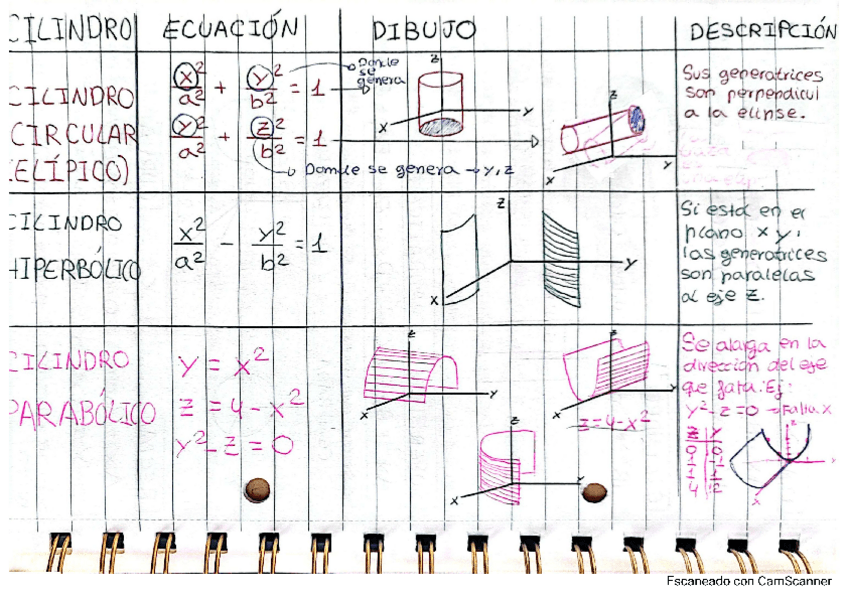 CILINDRO ECUACIÓN DIBUJO DESCRIPCIÓN
CILINDRO
CIRCULAR
(ELÍPICO)
x²/a² + y²/b² = 1
y²/a² + z²/b² = 1
Donde
se
genera
Donde se genera → y, z
z
y
x
z
y
x
Sus generatrices
son perpendicul
a la elipse.
CILINDRO
HIPERBÓLICO
x²/a² - y²/b² = 1
z
y
x
Si está en el
plano xy,
las generatrices
son paralelas
al eje z.
CILINDRO
PARABÓLICO
y = x²
z = 4 - x²
y² - z = 0
z
y
x
z
x
z = 4 - x²
z
x
Se alarga en la
dirección del eje
que falta: Ej:
y² - z = 0 → Falta x
z y
0 0
1 1
1 -1
4
z
x
Escaneado con CamScanner